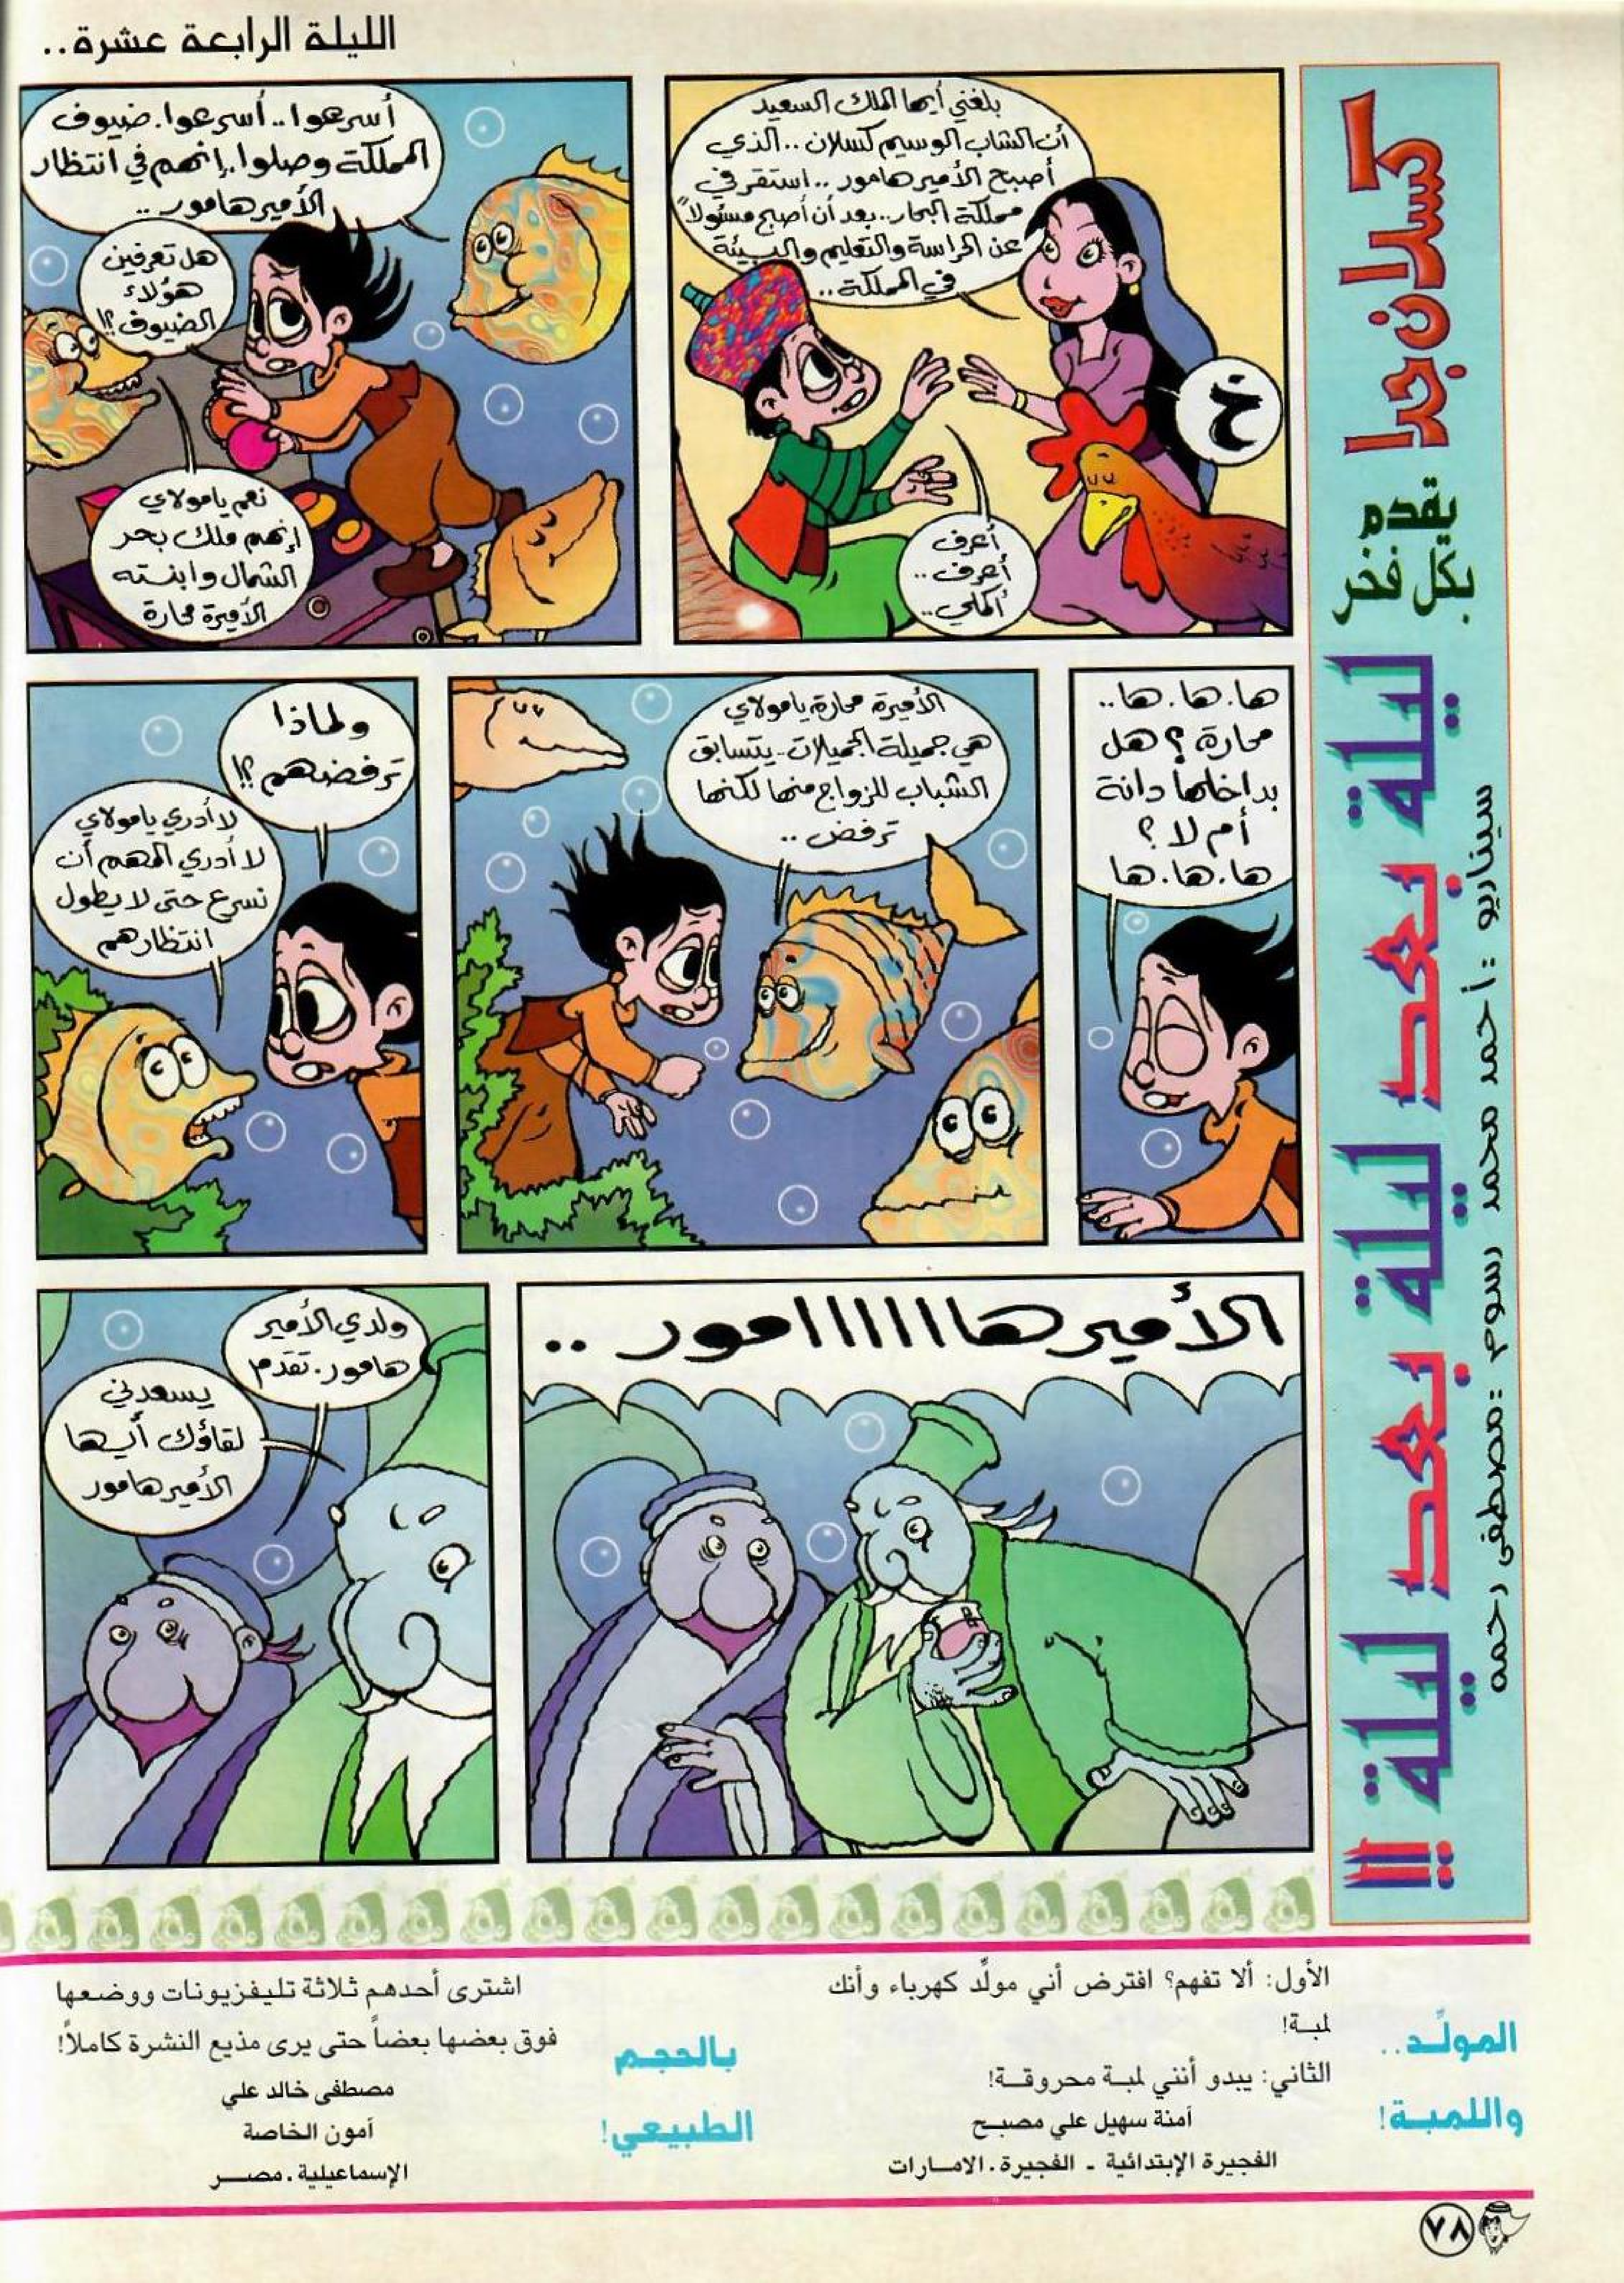 الليلة الرابعة عشرة..
كسلان جدا
يقدم
بكل فخر
ليلة بعد ليلة بعد ليلة بعد ليلة !!
سيناريو : أحمد محمد رسوم : مصطفى رحمه
بلغني أيها الملك السعيد
أن الشاب الوسيم كسلان .. الذي
أصبح الأمير هامور .. استقر في
مملكة البحار .. بعد أن أصبح مسئولاً
عن الحراسة والتعليم والبيئة
في المملكة ..
أعرف
أعرف ..
أكملي ..
أسرعوا .. أسرعوا . ضيوف
المملكة وصلوا . إنهم في انتظار
الأمير هامور ..
هل تعرفين
هؤلاء
الضيوف ؟!
نعم يامولاي
إنهم ملك بحر
الشمال وابنته
الأميرة محارة
ها . ها . ها ..
محارة ؟ هل
بداخلها دانة
أم لا ؟
ها . ها . ها
الأميرة محارة يامولاي
هي جميلة الجميلات .. يتسابق
الشباب للزواج منها لكنها
ترفض ..
ولماذا
ترفضهم ؟!
لا أدري يامولاي
لا أدري المهم أن
نسرع حتى لا يطول
انتظارهم
الأمير هاااااااامور ..
ولدي الأمير
هامور . تقدم
يسعدني
لقاؤك أيها
الأمير هامور
المولّد..
واللمبـة!
الأول: ألا تفهم؟ افترض أني مولّد كهرباء وأنك
لمبـة!
الثاني: يبدو أنني لمبـة محروقـة!
آمنة سهيل علي مصبـح
الفجيرة الإبتدائية - الفجيرة . الامـارات
بالحجـم
الطبيعي!
اشترى أحدهم ثلاثة تليفزيونات ووضعها
فوق بعضها بعضاً حتى يرى مذيع النشرة كاملاً!
مصطفى خالد علي
آمون الخاصة
الإسماعيلية . مصـر
٧٨